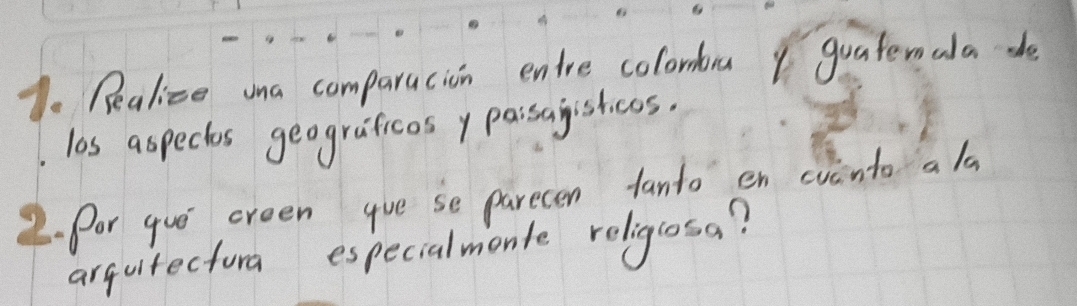 1. Realize una comparación entre colombia y guatemala de
. los aspectos geográficos y paisajisticos.
2. Por qué creen que se parecen tanto en cuánto a la
arquitectura especialmente religiosa?